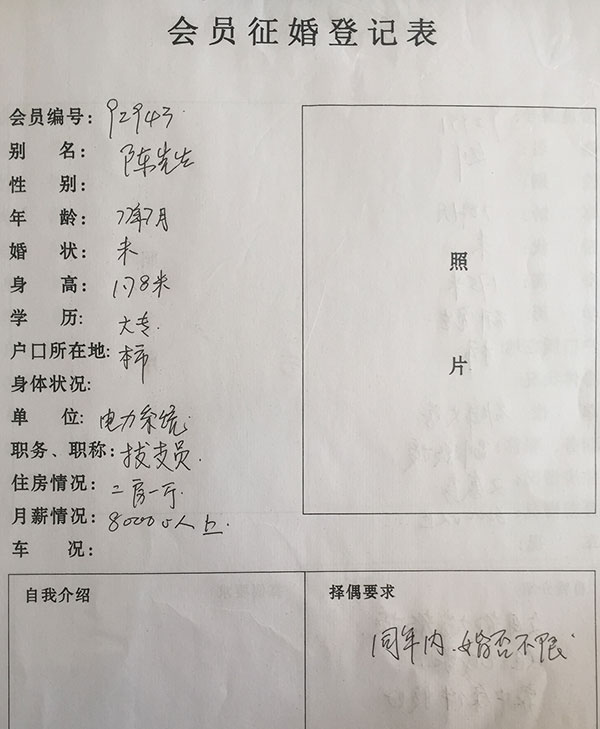 会员征婚登记表
会员编号: 92943
别 名: 陈先生
性 别:
年 龄: 77年7月
婚 状: 未
身 高: 1.78米
学 历: 大专
户口所在地: 本市
身体状况:
单 位: 电力系统
职务、职称: 技支员
住房情况: 二房一厅
月薪情况: 8000以上
车 况:
照
片
自我介绍
择偶要求
同年内、婚否不限